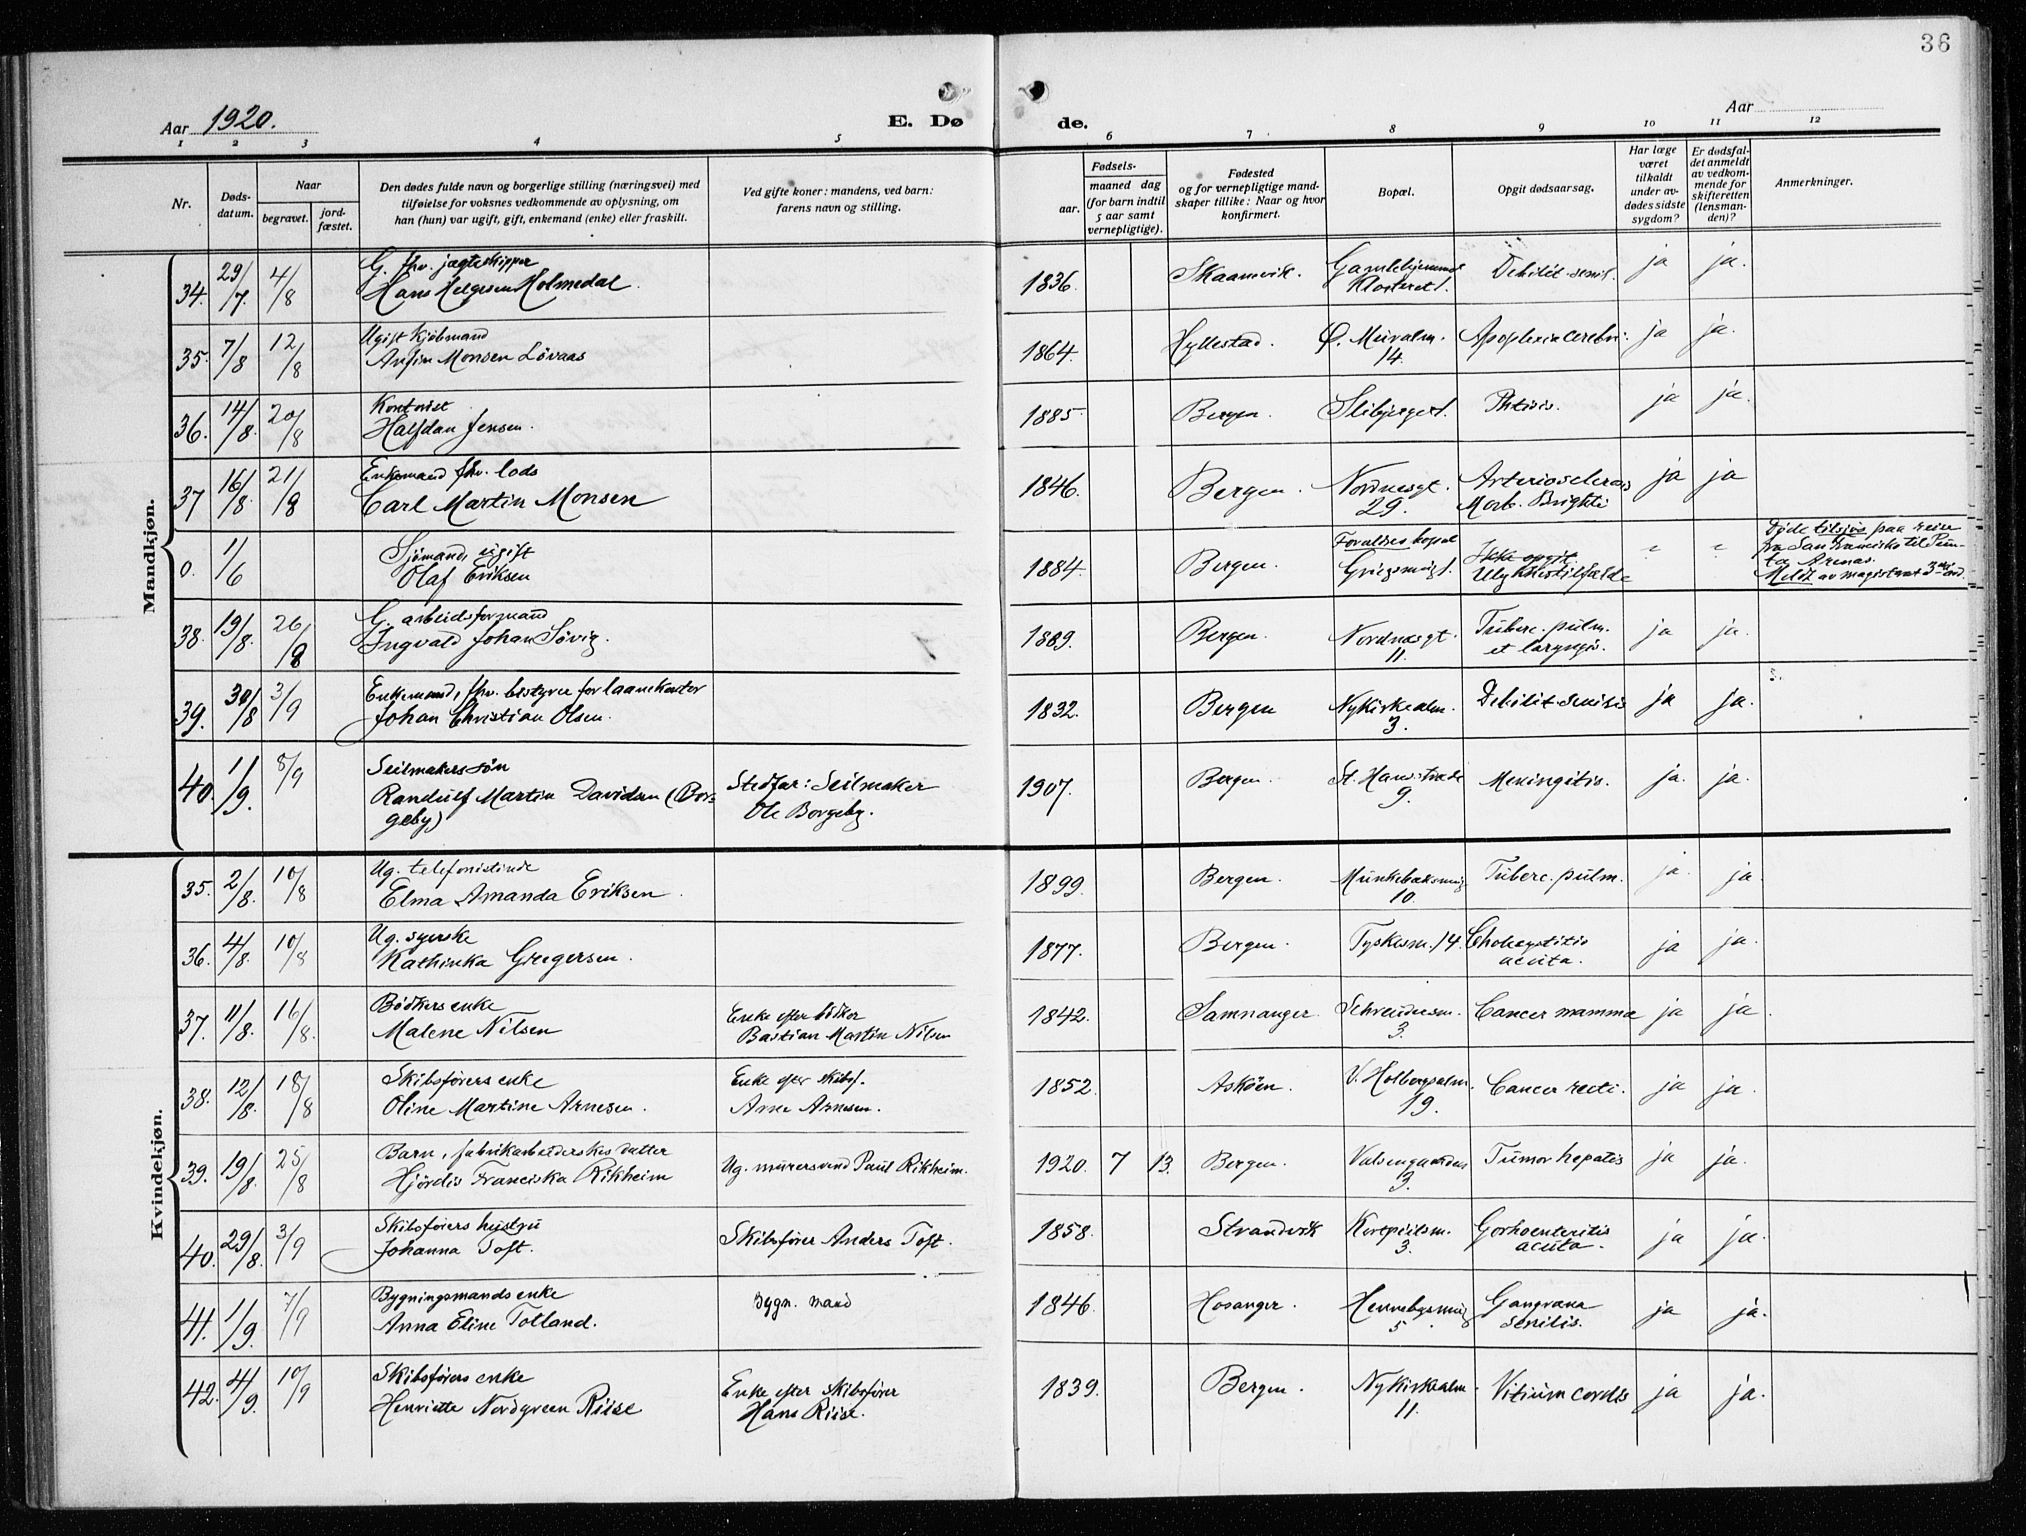 36
Aar 1920.
E. Dø
de.
Aar
1 2 3 4 5 6 7 8 9 10 11 12
Nr.
Døds-
datum.
Naar
begravet.
jord-
fæstet.
Den dødes fulde navn og borgerlige stilling (næringsvei) med
tilføielse for voksnes vedkommende av oplysning, om
han (hun) var ugift, gift, enkemand (enke) eller fraskilt.
Ved gifte koner: mandens, ved barn:
farens navn og stilling.
Fødsels-
aar.
maaned dag
(for barn indtil
5 aar samt
vernepligtige).
Fødested
og for vernepligtige mand-
skaper tillike: Naar og hvor
konfirmert.
Bopæl.
Opgit dødsaarsag.
Har læge
været
tilkaldt
under av-
dødes sidste
sygdom?
Er dødsfal-
det anmeldt
av vedkom-
mende for
skifteretten
(lensman-
den)?
Anmerkninger.
Mandkjøn.
34. 29/7. 4/8
G. fhv. jægteskipper
Hans Helgesen Holmedal.
1836. Skaanevik.
Gamlehjemmet
Klosteret.
Debilit. senil. ja ja.
35. 7/8 12/8
Ugift Kjøbmand
Anfin Monsen Løvaas
1864. Hyllestad.
Ø. Muralm.
14.
Apoplexia cerebri. ja ja.
36. 14/8. 20/8
Kontorist
Halfdan Jensen.
1885. Bergen. Phtisis. ja ja.
37 16/8. 21/8
Enkemand fhv. lods
Carl Martin Monsen
1846. Bergen.
Nordnesgt.
29.
Arteriosclerosis
Morb. Brightii
ja ja
0. 1/6
Sjømand, ugift
Olaf Eriksen
1884. Bergen.
Forældres bopæl
Ikke opgit.
Ulykkestilfælde
" "
Døde tilsjøs paa reise
fra San Francisko til Pun-
ta Arenas.
Meldt av magistrat 3die avd.
38. 19/8. 26/8
G. arbeidsformand
Ingvald Johan Søvig.
1889. Bergen.
Nordnesgt.
11.
Tuberc. pulm.
et laryngis.
ja ja.
39. 30/8 3/9
Enkemand, fhv. bestyrer for laanekontor
Johan Christian Olsen.
1832. Bergen
Nykirkealm.
3.
Debilit. senilis ja ja.
40. 1/9. 8/9
Seilmakers søn
Randulf Martin Davidsen (Bor-
geby)
Stedfar: Seilmaker
Ole Borgeby.
1907. Bergen.
St. Hansstræde
9.
Meningitis. ja. ja.
Kvindekjøn.
35. 2/8. 10/8
Ug. telefonistinde
Elma Amanda Eriksen.
1899. Bergen.
Munkebæksmug
10.
Tuberc. pulm. ja. ja.
36. 4/8. 10/8
Ug. syerske
Kathinka Gregersen.
1877. Bergen. Tyskesm. 14.
Cholecystitis
acuta.
ja ja.
37. 11/8. 16/8.
Bødkers enke
Malene Nilsen
Enke efter bødker
Bastian Martin Nilsen
1842. Samnanger.
Schreudersm.
3.
Cancer mamma ja ja
38. 12/8. 18/8
Skibsførers enke
Oline Martine Arnesen.
Enke efter skibsf.
Arne Arnesen.
1852. Askøen.
V. Holbergsalm.
19.
Cancer recti. ja ja.
39. 19/8. 25/8
Barn, fabrikarbeiderskes datter
Hjørdis Franciska Rikheim
Ug. murersvend Paul Rikheim.
1920. 7 13. Bergen.
3.
Tumor hepatis ja ja.
40. 29/8. 3/9
Skibsførers hustru
Johanna Toft.
Skibsfører Anders Toft.
1858. Strandvik
Kortpilsm.
3.
acuta.
ja ja.
41. 1/9. 7/9
Bygningsmands enke
Anna Eline Totland.
Bygn. mand
1846. Hosanger.
Hennebysmug
5.
Gangræna
senilis.
ja ja.
42. 4/9. 10/9
Skibsførers enke
Henriette Nordgreen Riise
Enke efter skibsfører
Hans Riise.
1839. Bergen.
Nykirkealm.
11.
Vitium cordis ja ja.